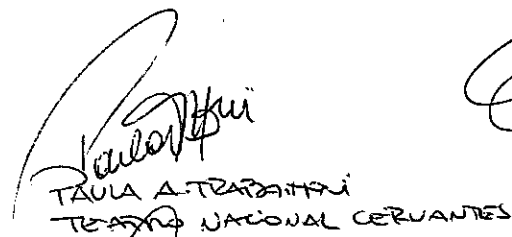 PAULA A. TRABATTONI
TEATRO NACIONAL CERVANTES